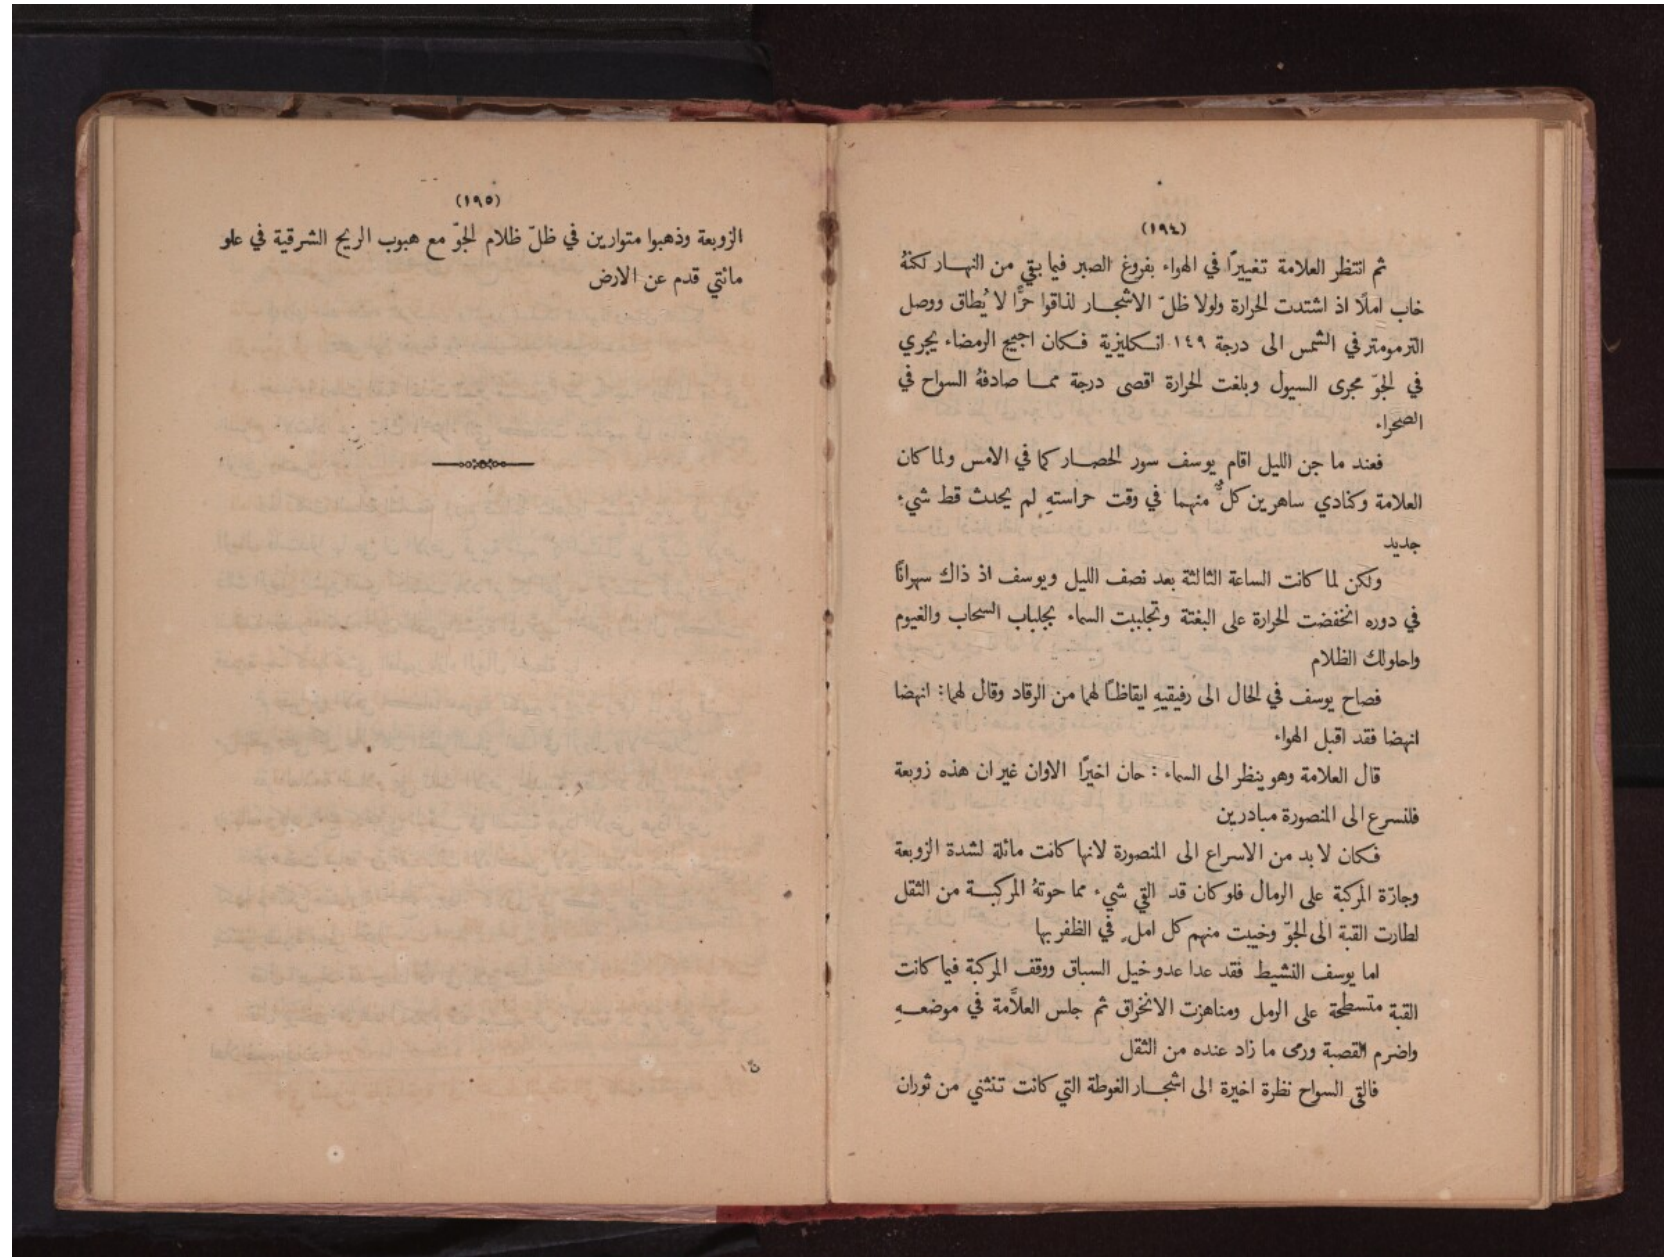 (١٩٤)
ثم انتظر العلامة تغييرًا في الهواء بفروغ الصبر فيما بقي من النهـار لكنهُ
خاب املًا اذ اشتدت الحرارة ولولا ظلّ الاشجـار لذاقوا حرًّا لا يُطاق ووصل
الترمومتر في الشمس الى درجة ١٤٩ انـكليزية فـكان اجيج الرمضاء يجري
في الجوّ مجرى السيول وبلغت الحرارة اقصى درجة ممـا صادفهُ السواح في
الصحراء
فعند ما جن الليل اقام يوسف سور الحصـار كما في الامس ولما كان
العلامة وكنادي ساهرين كلٌّ منهما في وقت حراستهِ لم يحدث قط شيء
جديد
ولكن لما كانت الساعة الثالثة بعد نصف الليل ويوسف اذ ذاك سهرانًا
في دوره انخفضت الحرارة على البغتة وتجلببت السماء بجلباب السحاب والغيوم
واحاولك الظلام
فصاح يوسف في الحال الى رفيقيهِ ايقاظـًا لهما من الرقاد وقال لهما: انهضا
انهضا فقد اقبل الهواء
قال العلامة وهو ينظر الى السماء : حان اخيرًا الاوان غير ان هذه زوبعة
فلنسرع الى المنصورة مبادرين
فـكان لا بد من الاسراع الى المنصورة لانها كانت مائلة لشدة الزوبعة
وجارّة المركبة على الرمال فلو كان قد القي شيء مما حوتهُ المركبـة من الثقل
لطارت القبة الى الجوّ وخيبت منهم كل املٍ في الظفر بها
اما يوسف النشيط فقد عدا عدو خيل السباق ووقف المركبة فيما كانت
القبة متسطحة على الرمل ومناهزت الانخراق ثم جلس العلاَّمة في موضعـهِ
واضرم القصبة ورمى ما زاد عنده من الثقل
فالقى السواح نظرة اخيرة الى اشجـار الغوطة التي كانت تنثني من ثوران
(١٩٥)
الزوبعة وذهبوا متوارين في ظلّ ظلام الجوّ مع هبوب الريح الشرقية في علو
مائتي قدم عن الارض